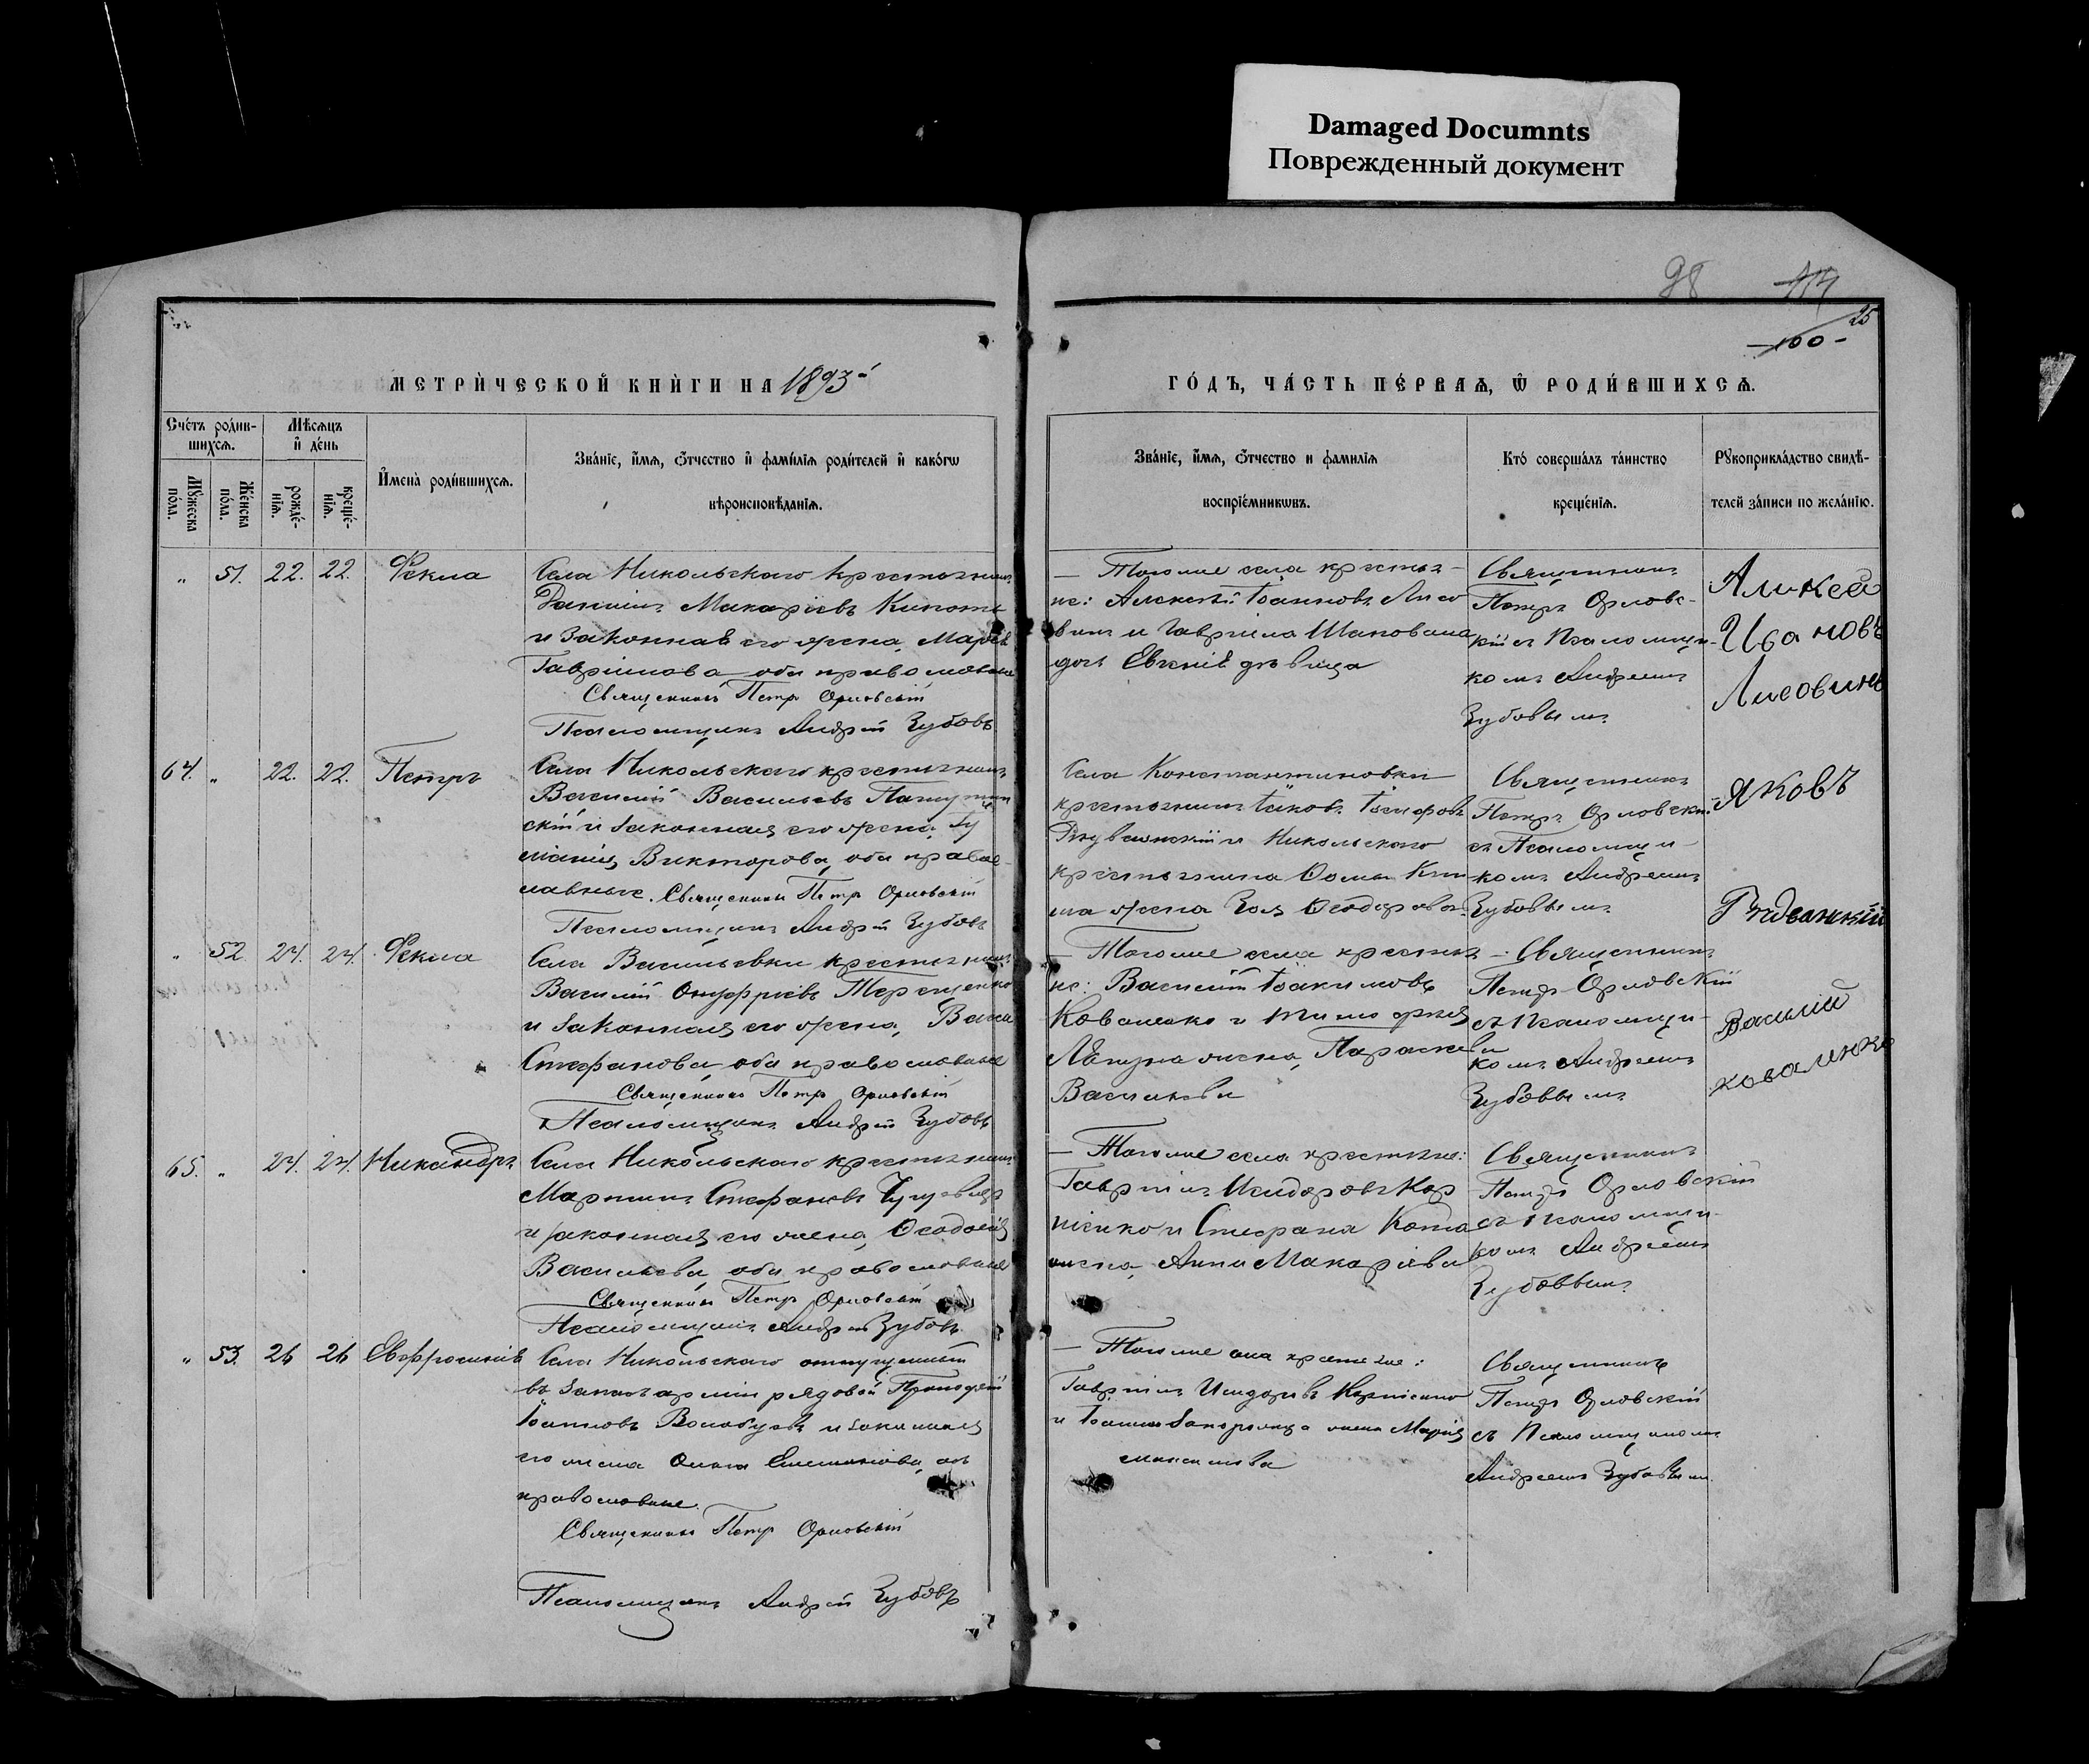 Damaged Documnts
Поврежденный документ
98
25
100
МЕТРИЧЕСКОЙ КНИГИ НА 1893
ГОДЪ, ЧАСТЬ ПЕРВАЯ, Ѿ РОДИВШИХСЯ.
Счетъ родив-
шихся.
Мужеска
пола.
Женска
пола.
Мѣсяцъ
и день
рожде-
нія.
креще-
нія.
Имена родившихся.
Званіе, имя, отчество и фамилія родителей и какогѡ
вѣроисповѣданія.
Званіе, имя, отчество и фамилія
воспріемникѡвъ.
Кто совершалъ таинство
крещенія.
Рукоприкладство свидѣ-
телей записи по желанію.
" 51. 22. 22. Фекла
Села Никольскаго крестьянинъ
Даніилъ Макаріевъ
и законная его жена, Марія
Гавріилова оба православные
Священникъ Петръ Орловскій
Псаломщикъ Андрей Зубовъ
Тогоже села крестья-
не: Алексѣй Іоанновъ Лисо
винъ и Гавріила Шаповала
дочь Евгенія дѣвица
Священникъ
Петръ Орловс-
кій съ Псаломщи-
комъ Андреемъ
Зубовымъ
Алисей
Ивановъ
Лисовинъ
64. " 22. 22. Петръ
Села Никольскаго крестьянинъ
Василій Васильевъ
скій и законная его жена,
Викторова, оба правос-
лавные. Священникъ Петръ Орловскій
Псаломщикъ Андрей Зубовъ
Села Константиновки
крестьянинъ Іаковъ Іосифовъ
и Никольскаго
крестьянина Ѳомы
жена Зоя Ѳеодорова
Священникъ
Петръ Орловскій
съ Псаломщи-
комъ Андреемъ
Зубовымъ
Яковъ
" 52. 24. 24. Фекла
Села Васильевки крестьянинъ
Василій Онуфріевъ Терещенко
и законная его жена, Васса
Стефанова, оба православные
Священникъ Петръ Орловскій
Псаломщикъ Андрей Зубовъ
Тогоже села крестья-
не: Василій Іоакимовъ
Коваленко и Тимофея
жена, Параскева
Васильева
Священникъ
Петръ Орловскій
съ Псаломщи-
комъ Андреемъ
Зубовымъ
Василий
коваленко
65. " 24. 24. Никандръ
Села Никольскаго крестьянинъ
Мартинъ Стефановъ
и законная его жена, Ѳеодосія
Васильева, оба православные
Священникъ Петръ Орловскій
Псаломщикъ Андрей Зубовъ
Тогоже села крестьяне:
Гавріилъ Исидоровъ Кар
піенко и Стефана
жена, Анна Макаріева
Священникъ
Петръ Орловскій
съ Псаломщи-
комъ Андреемъ
Зубовымъ
" 53. 26 26 Евфросинія
Села Никольскаго отпущенный
въ запасъ арміи рядовой
Іоанновъ и законная
его жена Емельянова, оба
православные.
Священникъ Петръ Орловскій
Псаломщикъ Андрей Зубовъ
Тогоже села крестьяне:
Гавріилъ Исидоровъ Карпіенко
и Іоанна жена Марія
Священникъ
Петръ Орловскій
съ Псаломщикомъ
Андреемъ Зубовымъ